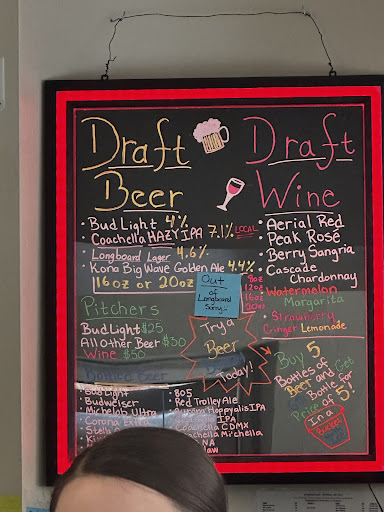 Draft
Beer
Draft
Wine
• Bud Light 4%
• Coachella HAZY IPA 7.1% LOCAL
• Longboard Lager 4.6%
• Kona Big Wave Golden Ale 4.4%
16oz or 20oz
• Aerial Red
• Peak Rosé
• Berry Sangria
• Cascade
Chardonnay
• Watermelon
Margarita
• Strawberry
Ginger Lemonade
Out
of
Longboard
Sorry
8oz
12oz
16oz
20oz
Pitchers
Bud Light $25
All Other Beer $30
Wine $50
Try a
Beer
Today!
Buy 5
Bottles of
Beer and Get
Bottle for
Price of 5!
In a
Bucket
Beer
• Bud Light
• Budweiser
• Michelob Ultra
• Corona Extra
• Stella
• 805
• Red Trolley Ale
IPA
IPA
Coachella CDMX
Coachella Michella
NA
aw